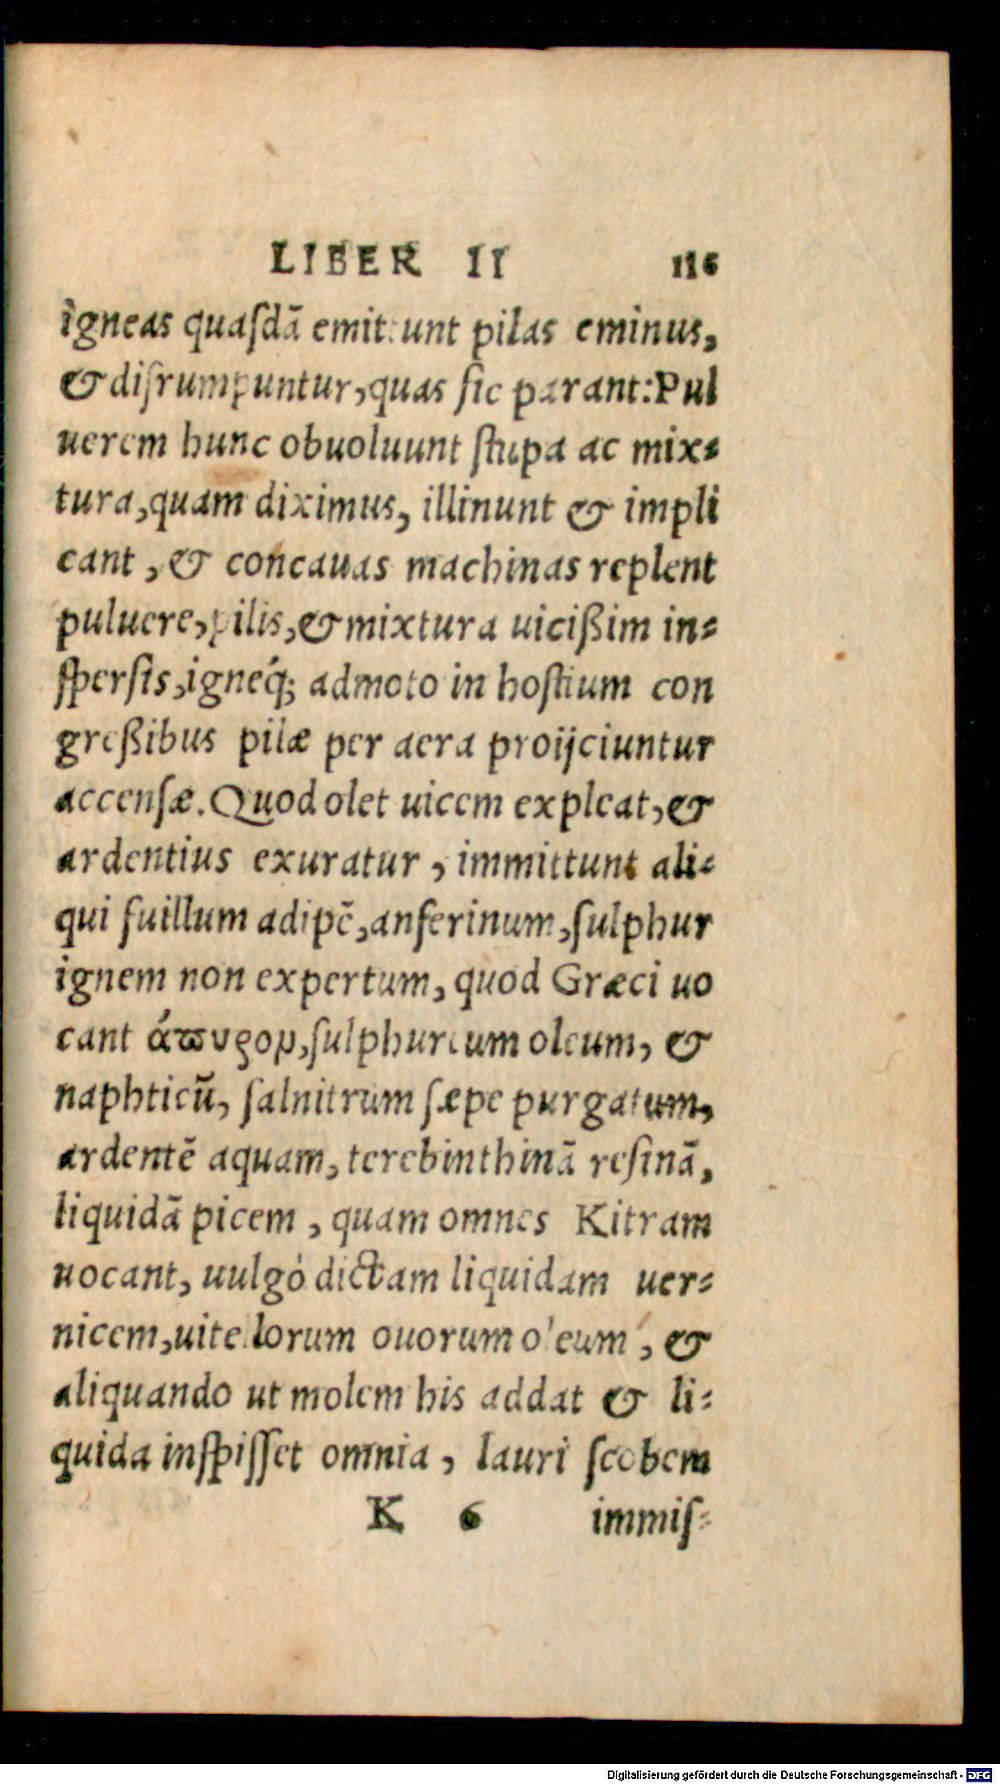 LIBER II 116
igneas quaſdā emittunt pilas eminus,
& diſrumpuntur, quas ſic parant: Pul
uerem hunc obuoluunt ſtupa ac mix⸗
tura, quam diximus, illinunt & impli
cant, & concauas machinas replent
puluere, pilis, & mixtura uiciſſim in⸗
ſperſis, igneq́; admoto in hoſtium con
greſſibus pilæ per aera proijciuntur
accenſæ. Quod olet uicem expleat, &
ardentius exuratur, immittunt ali⸗
qui ſuillum adipē, anſerinum, ſulphur
ignem non expertum, quod Græci uo
cant ἄπυρον, ſulphureum oleum, &
naphticū, ſalnitrum ſæpe purgatum,
ardentē aquam, terebinthinā reſinā,
liquidā picem, quam omnes Kitram
uocant, uulgò dictam liquidam uer⸗
nicem, uitellorum ouorum oleum, &
aliquando ut molem his addat & li⸗
quida inſpiſſet omnia, lauri ſcobem
K 6 immiſ⸗
Digitalisierung gefördert durch die Deutsche Forschungsgemeinschaft - DFG